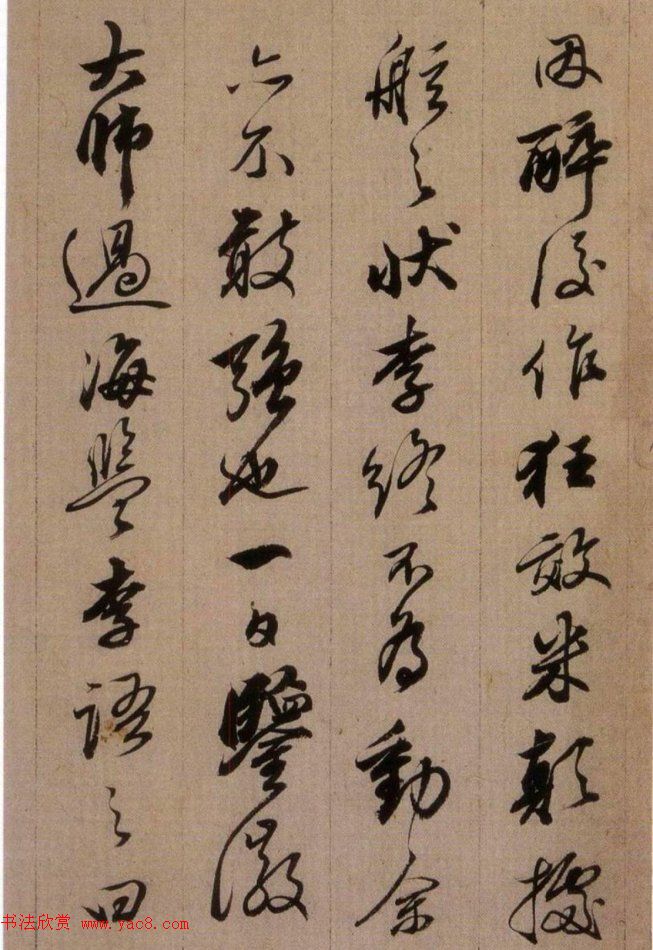 因醉後作狂效米顛據
舷之狀李終不為動余
亦不敢強也一日鑒徵
大師過海鹽李語之曰
书法欣赏 www.yac8.com